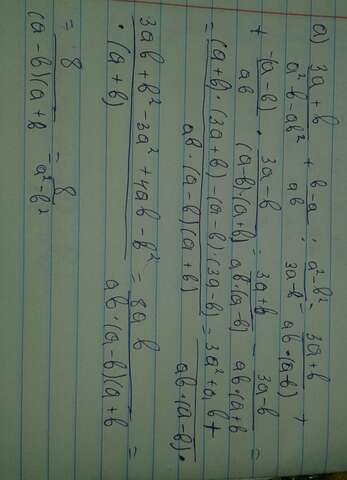 a) 3a+b   b-a   a²-b²   3a+b
— + — : — = — +
a²b-ab²   ab   3a-b   ab·(a-b)
+ -(a-b) · 3a-b = 3a+b - 3a-b =
ab   (a-b)·(a+b)   ab·(a-b)   ab·(a+b
= (a+b)·(3a+b)-(a-b)·(3a-b) = 3a²+ab+
ab·(a-b)(a+b)   ab·(a-b)·
3ab+b²-3a²+4ab-b² = 8ab =
·(a+b)   ab·(a-b)(a+b
= 8 = 8
(a-b)(a+b   a²-b²